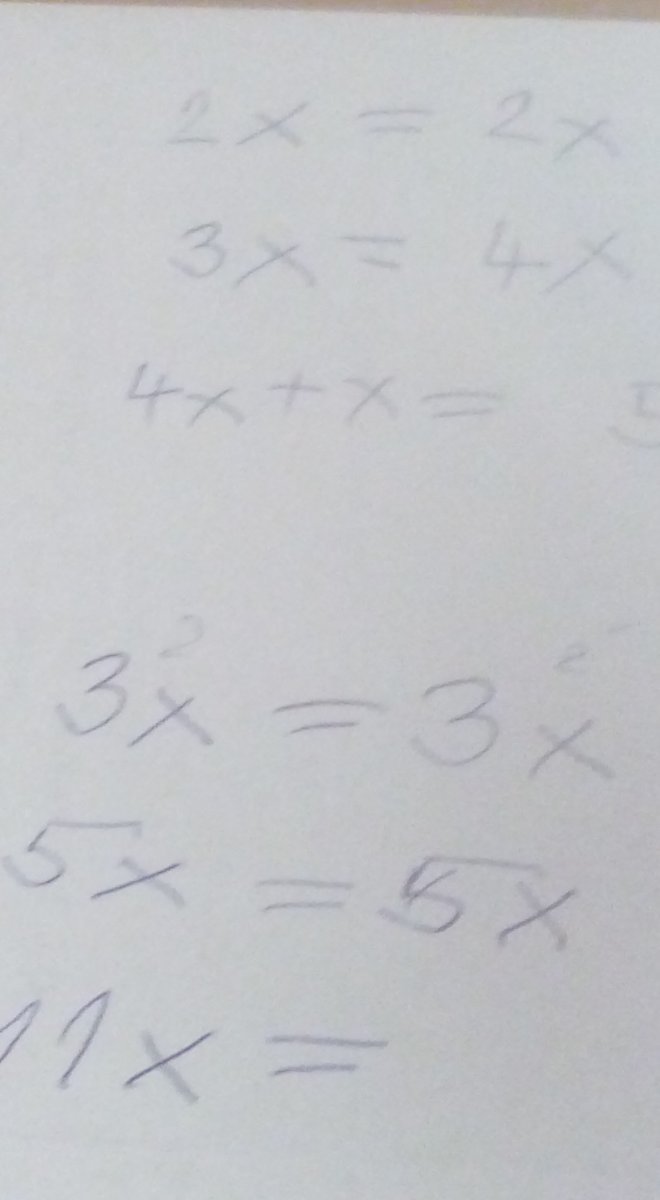 2x = 2x
3x = 4x
4x + x = 5
3x = 3x
5x = 5x
11x =